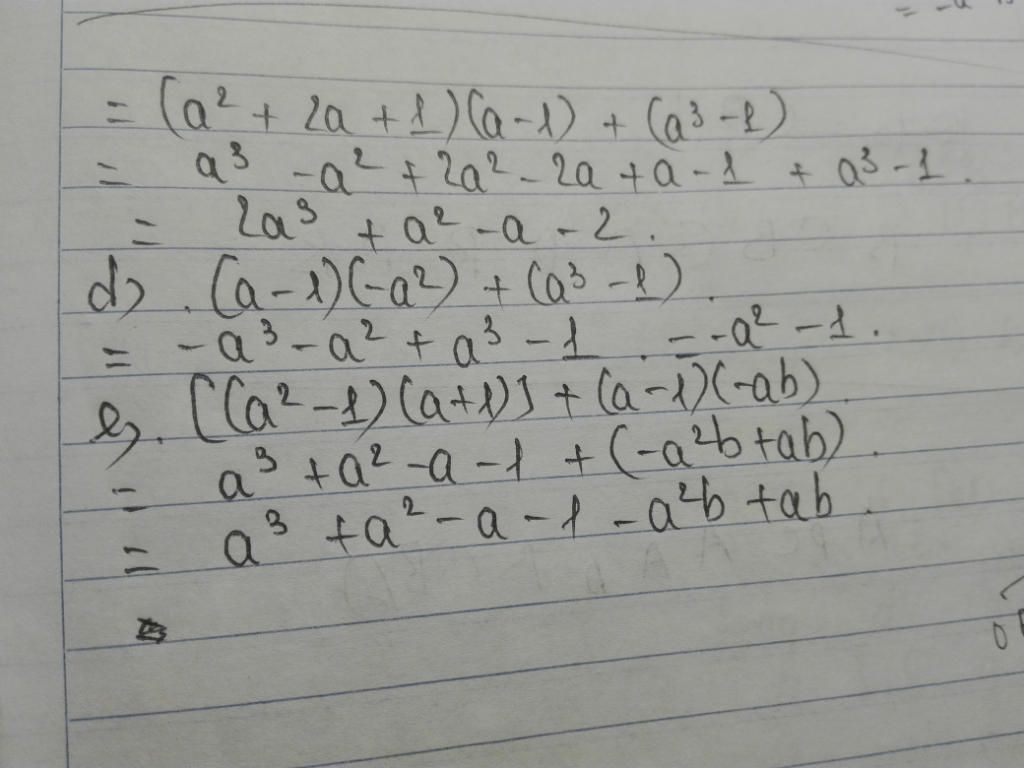 = (a² + 2a + 1)(a - 1) + (a³ - 1)
= a³ - a² + 2a² - 2a + a - 1 + a³ - 1.
= 2a³ + a² - a - 2.
d) . (a - 1)(-a²) + (a³ - 1).
= -a³ - a² + a³ - 1 . = -a² - 1.
e). [(a² - 1)(a + 1)] + (a - 1)(-ab).
= a³ + a² - a - 1 + (-a²b + ab).
= a³ + a² - a - 1 - a²b + ab.